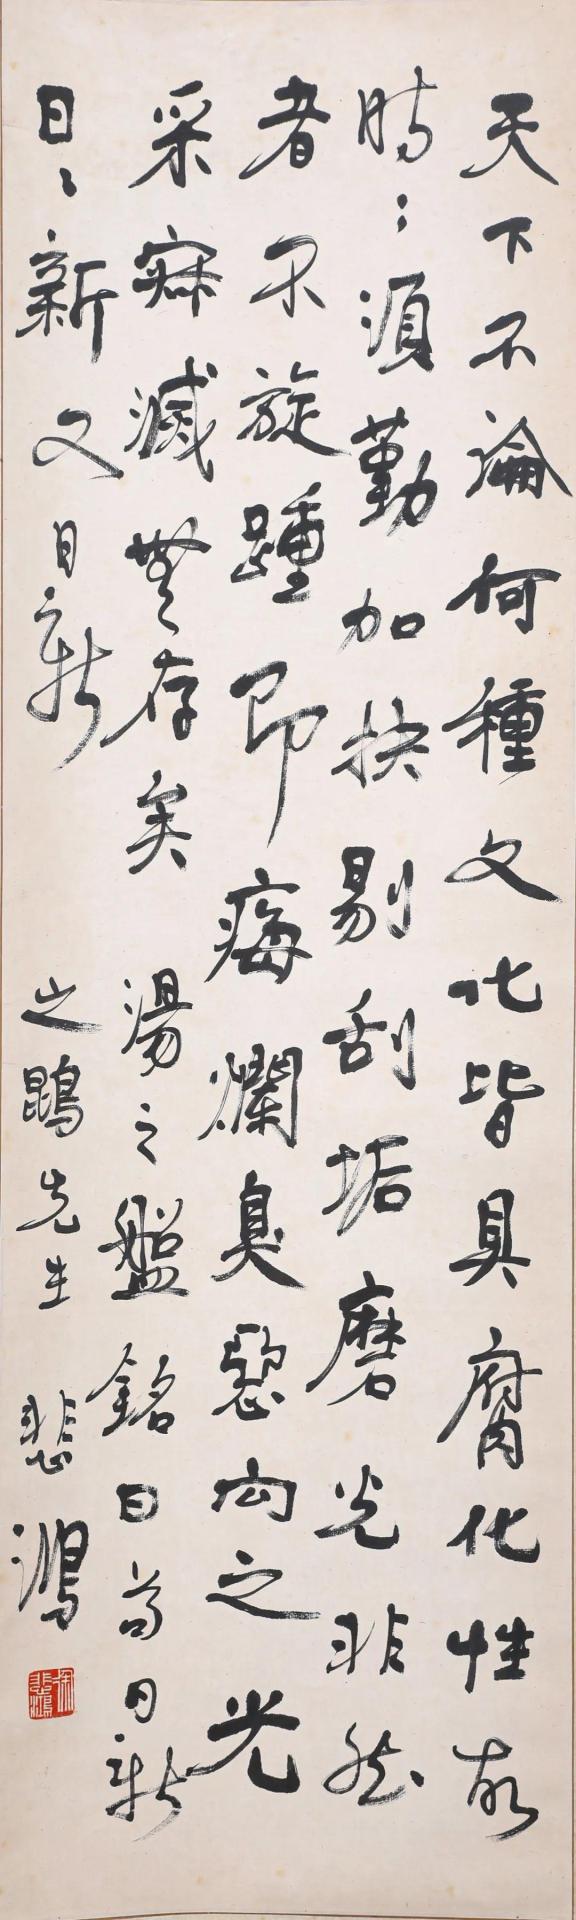 天下不論何種文化皆具腐化性故
時:須勤加抉剔刮垢磨光非然
者不旋踵即痗爛臭惡向之光
采寂滅無存矣 湯之盤銘曰苟日新
日:新又日新 之鵾先生 悲鴻
徐悲鴻